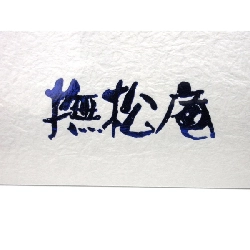 撫松庵